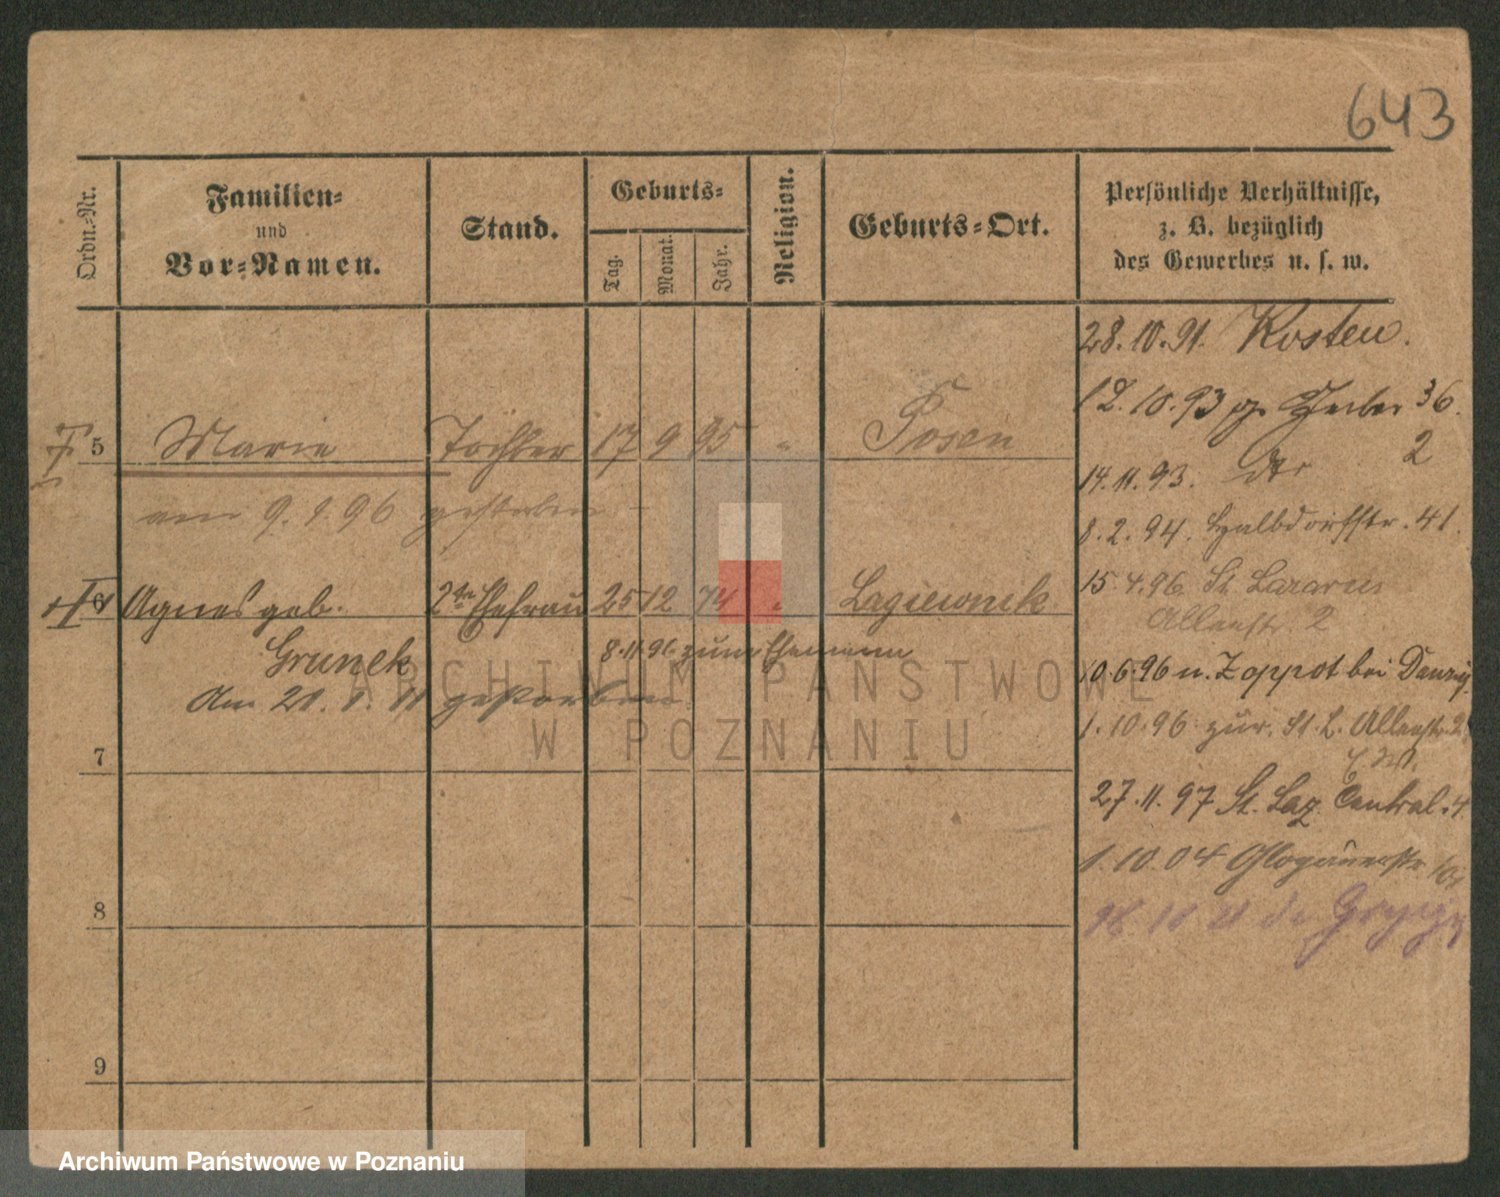 643
Ordn.-Nr.
Familien-
und
Vor-Namen.
Stand.
Geburts-
Tag.
Monat.
Jahr.
Religion.
Geburts-Ort.
Persönliche Verhältnisse,
z. B. bezüglich
des Gewerbes u. s. w.
28.10.91. Kosten.
12.10.93 36.
2
14.11.93.
8.2.94. Halbdorfstr. 41.
15.4.96. St. Lazarus
Allenstr. 2
10.6.96 n. Zoppot bei Danzig.
1.10.96 zur. St. L. Allenstr. 2
27.11.97 St. Laz. Central. 4
1.10.04 Glogauerstr
5 Marie Tochter 17 9 95 " Posen
am 9.1.96 gestorben
6 Agnes geb. 2te Ehefrau 25 12 74 " Lagiewnik
Grunek 8.11.96 zum Ehemann
Am gestorben
7
8
9
ARCHIWUM PAŃSTWOWE
W POZNANIU
Archiwum Państwowe w Poznaniu